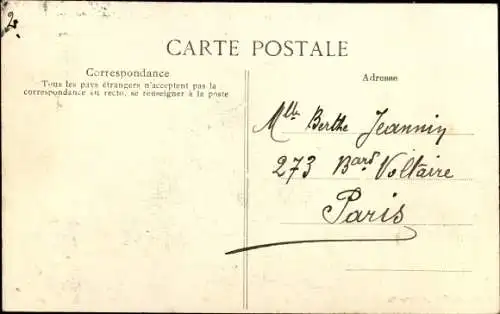 2.
CARTE POSTALE
Correspondance
Tous les pays étrangers n'acceptent pas la
correspondance au recto, se renseigner à la poste
Adresse
Mlle Berthe Jeannin
273 Bard Voltaire
Paris